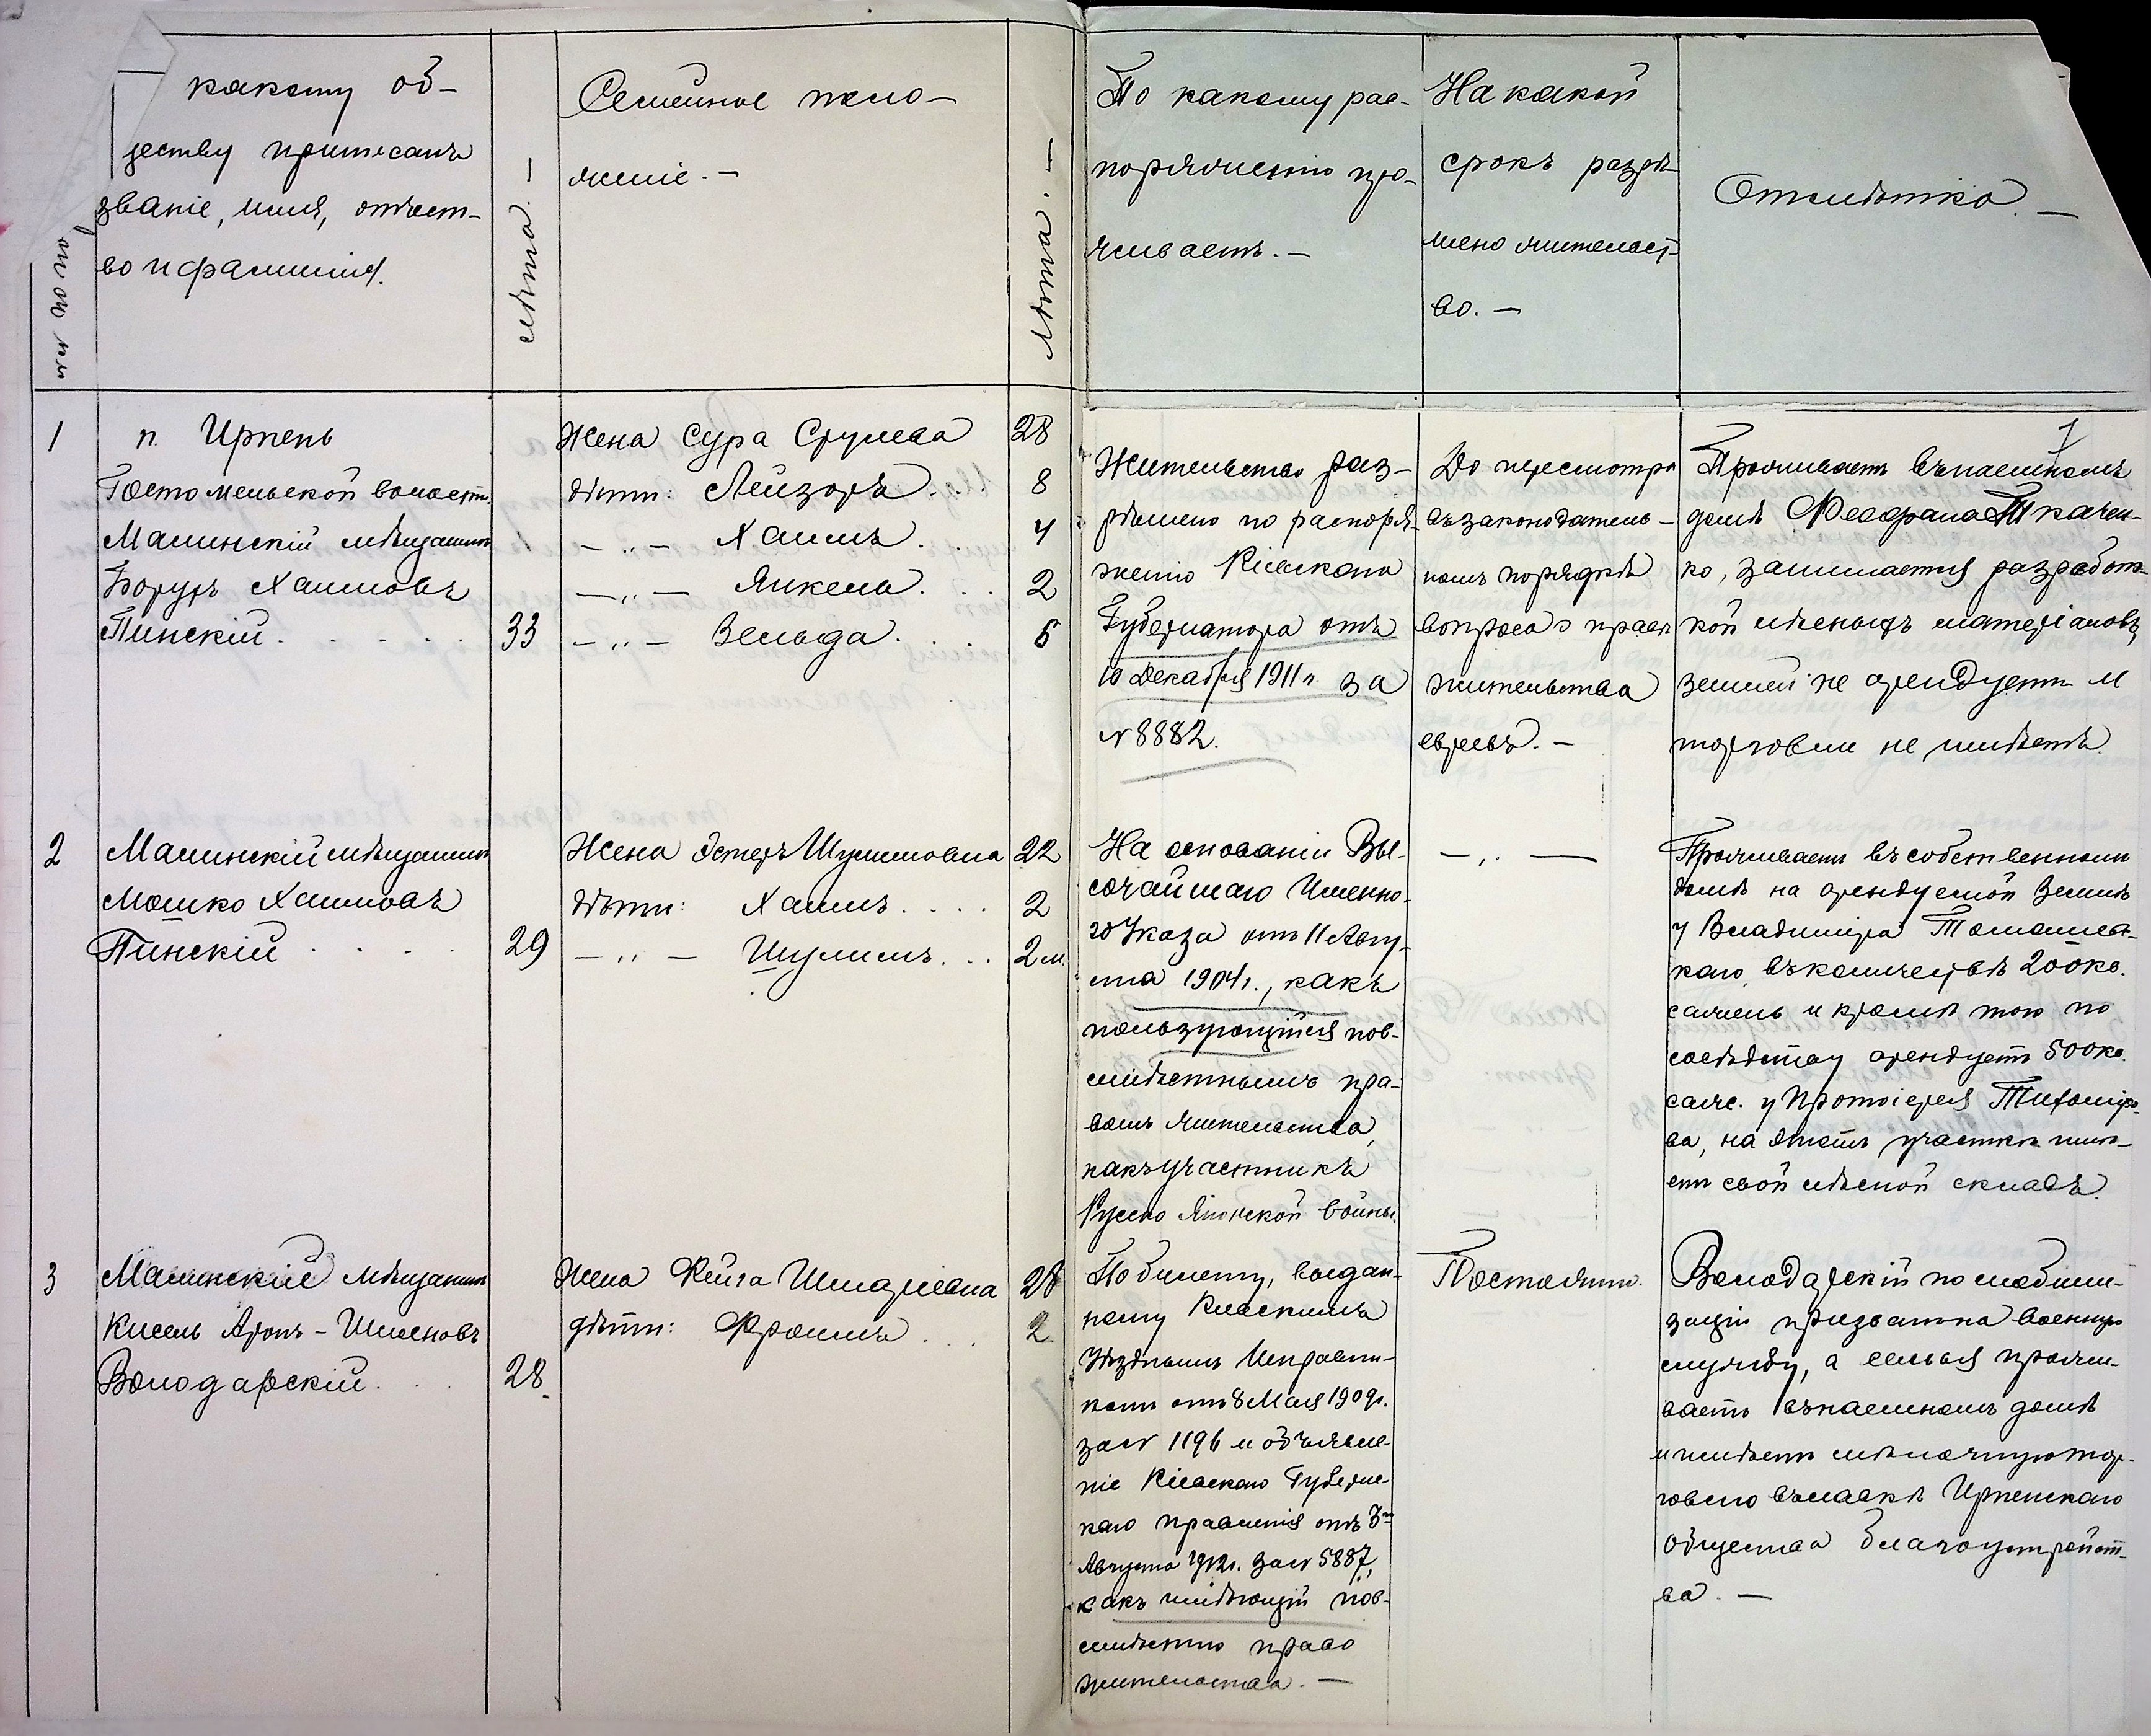 какому об-
ществу приписанъ
званіе, имя, отчест-
во и фамилія.
лѣта. —
Семейное поло-
женіе. —
Лѣта. —
По какому рас-
поряженію про-
живаетъ. —
На какой
срокъ разрѣ-
шено жительст-
во. —
Отмѣтка. —
1
п. Ирпень
Гостомельской волости.
Малинскій мѣщанинъ
Борухъ Хаимовъ
Пинскій. . . . .
33
Жена Сура Срулева
28
дѣти: Лейзоръ. . .
8
— „ — Хаимъ. . .
4
— „ — Янкель. . .
2
— „ — Зельда. . .
6
Жительство раз-
рѣшено по распоря-
женію Кіевскаго
Губернатора отъ
10 Декабря 1911 г. за
№ 8882.
До пересмотра
въ законодатель-
номъ порядкѣ
вопроса о правѣ
жительства
евреевъ. —
1
Проживаетъ въ наемномъ
домѣ Феофана Ткачен-
ко, занимается разработ-
кой лѣсныхъ матеріаловъ,
земли не арендуетъ и
торговли не имѣетъ.
2
Малинскій мѣщанинъ
Мошко Хаимовъ
Пинскій . . . .
29
Жена Эстеръ Шулимовна
22
дѣти: Хаимъ. . . .
2
— „ — Шулимъ. . .
2 м.
На основаніи Вы-
сочайшаго Именно-
го Указа отъ 11 Авгу-
ста 1904 г., какъ
пользующійся пов-
семѣстнымъ пра-
вомъ жительства,
какъ участникъ
Русско Японской войны.
— „ —
Проживаетъ въ собственномъ
домѣ на арендуемой землѣ
у Владиміра
каго, въ количествѣ 200 кв.
сажень и кромѣ того по
сосѣдству арендуетъ 500 кв.
саж. у Протоіерея Тихоміро-
ва, на этомъ участкѣ имѣ-
етъ свой лѣсной складъ.
3
Малинскій мѣщанинъ
Кисель Аронъ-Шимоновъ
Володарскій. . .
28.
Жена Фейга Шмаріевна
28
дѣти: Фроимъ . .
2
По билету, выдан-
ному Кіевскимъ
Уѣзднымъ Исправни-
комъ отъ 8 Мая 1909 г.
за № 1196 и объявле-
ніе Кіевскаго Губернс-
каго правленія отъ 3го
Августа 1912 г. за № 5887,
какъ имѣющій пов-
семѣстно право
жительства. —
Постоянно.
Володарскій по мобили-
заціи призванъ на военную
службу, а семья прожи-
ваетъ въ наемномъ домѣ
и имѣетъ мѣлочную тор-
говлю въ лавкѣ Ирпенскаго
общества благоустройст-
ва. —